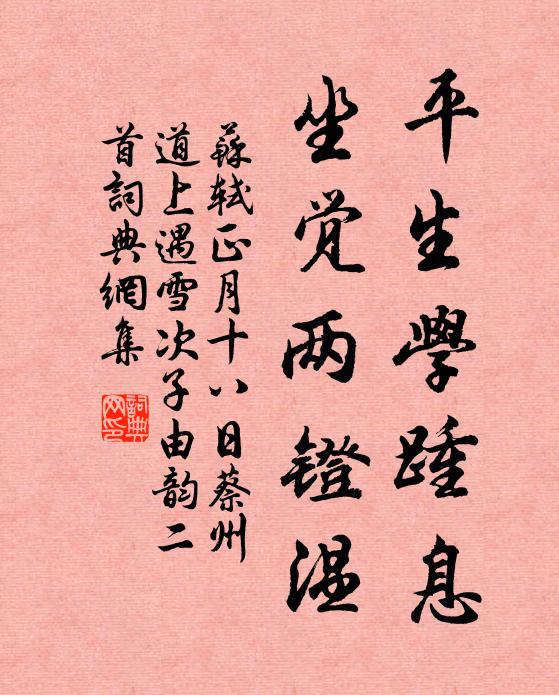 平生學踵息
坐觉两镫温
蘇軾正月十八日蔡州
道上遇雪次子由韵二
首詞典網集
詞典网印